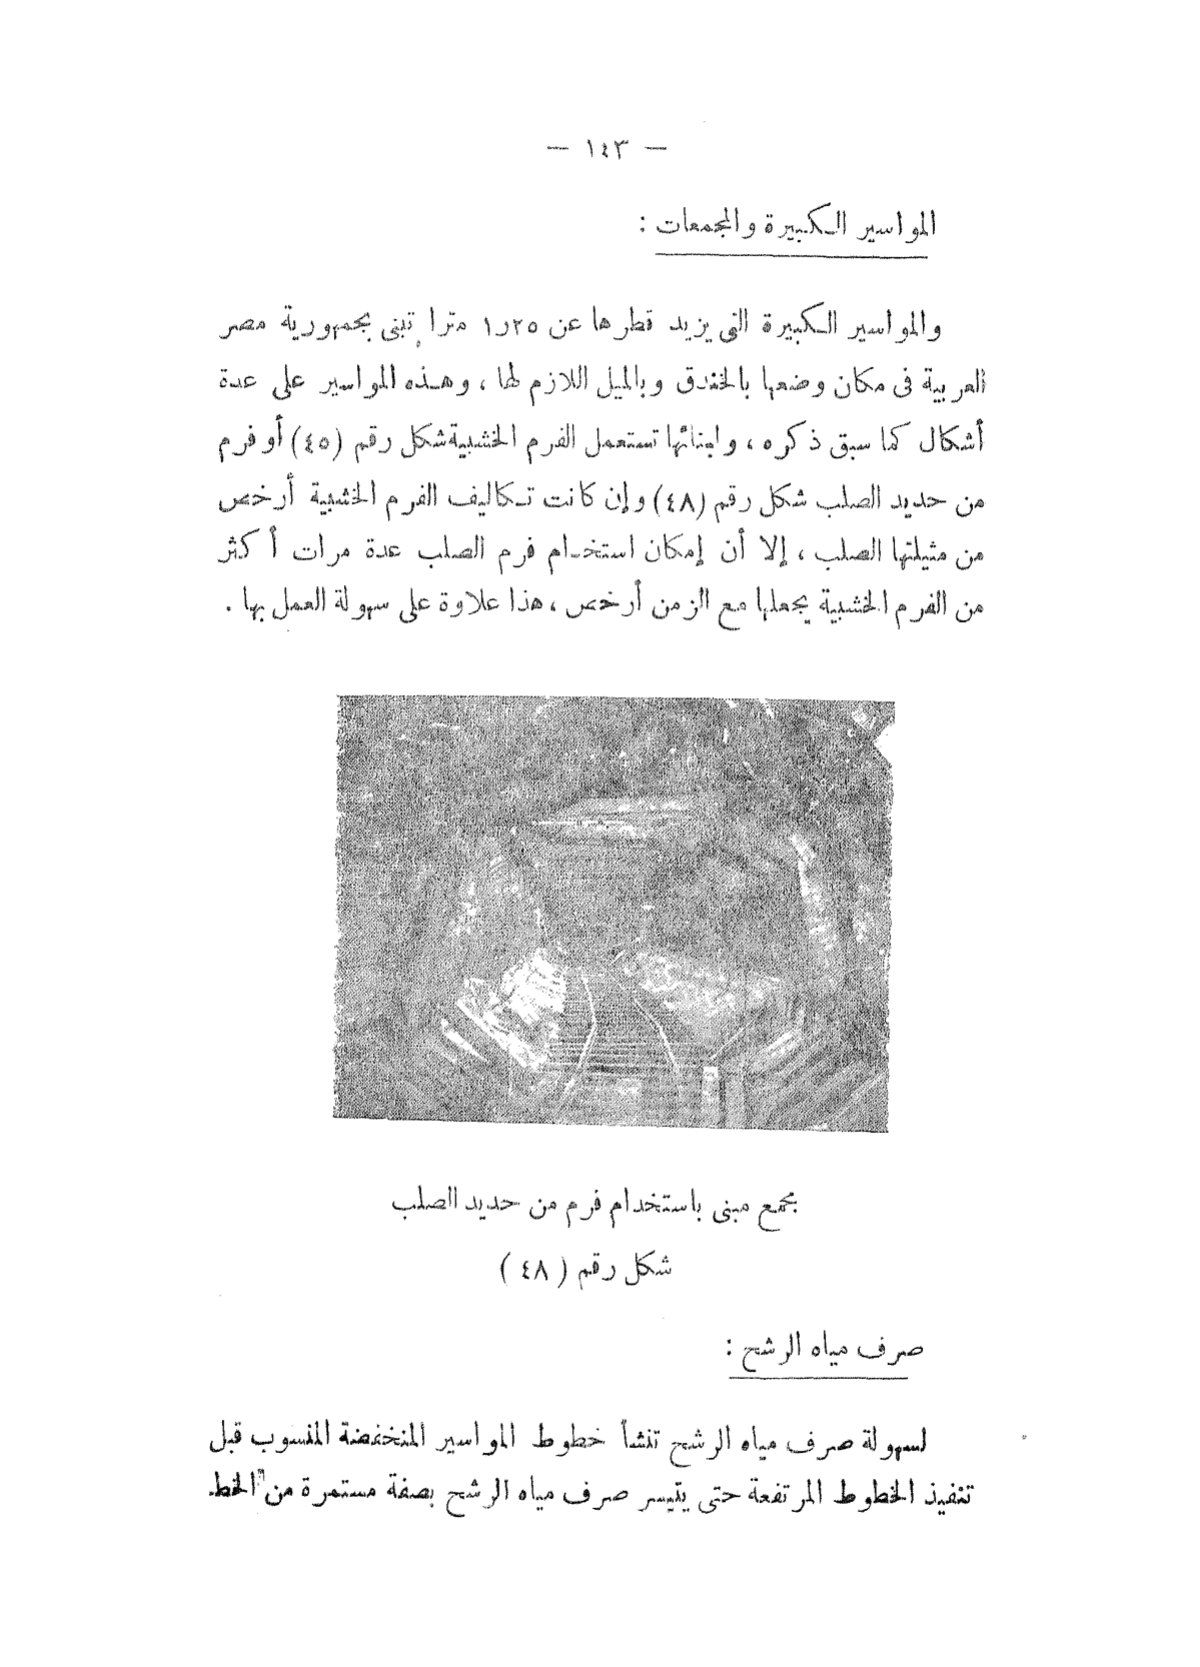 — ١٤٣ —
المواسير الكبيرة والمجمعات :
والمواسير الكبيرة التى يزيد قطرها عن ١٫٢٥ مترا تبنى بجمهورية مصر
العربية فى مكان وضعها بالخندق وبالميل اللازم لها ، وهذه المواسير على عدة
أشكال كما سبق ذكره ، ولبنائها تستعمل الفرم الخشبية شكل رقم (٤٥) أو فرم
من حديد الصلب شكل رقم (٤٨) وإن كانت تكاليف الفرم الخشبية أرخص
من مثيلتها الصلب ، إلا أن إمكان استخدام فرم الصلب عدة مرات أكثر
من الفرم الخشبية يجعلها مع الزمن أرخص ، هذا علاوة على سهولة العمل بها .
مجمع مبنى باستخدام فرم من حديد الصلب
شكل رقم ( ٤٨ )
صرف مياه الرشح :
لسهولة صرف مياه الرشح تنشأ خطوط المواسير المنخفضة المنسوب قبل
تنفيذ الخطوط المرتفعة حتى يتيسر صرف مياه الرشح بصفة مستمرة من الخط